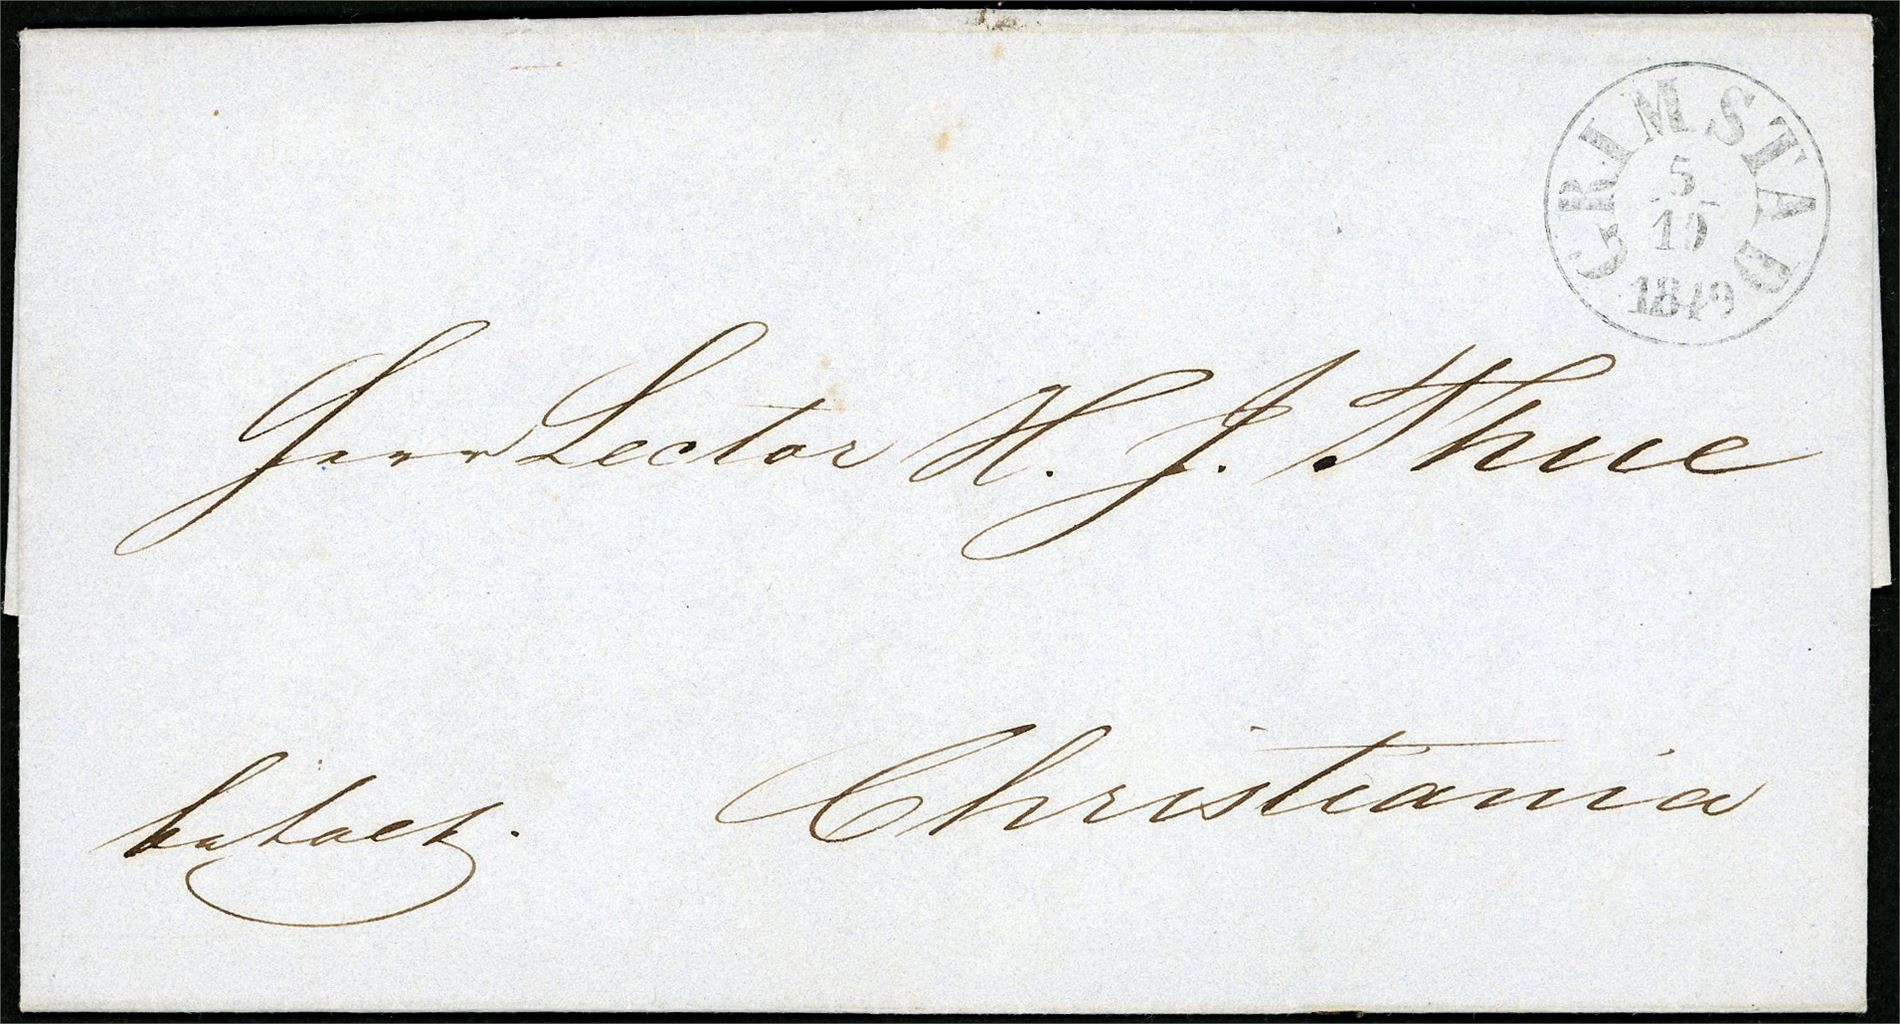 GRIMSTAD
5
10
1849
Herr Lector H. J. Thue
Christiania
betalt.